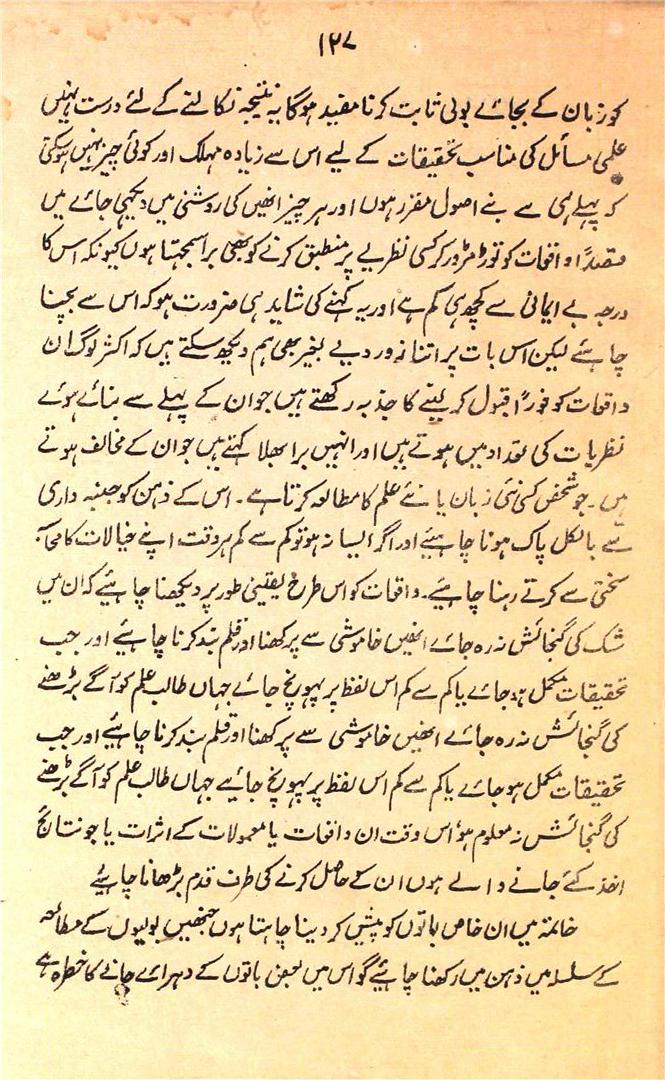 ۱۲۷
کو زبان کے بجائے بولی ثابت کرنا مفید ہوگا یہ نتیجہ نکالنے کے لئے درست نہیں
علمی مسائل کی مناسب تحقیقات کے لیے اس سے زیادہ مہلک اور کوئی چیز نہیں ہو سکتی
کہ پہلے ہی سے بنے اصول مقرر ہوں اور ہر چیز انھیں کی روشنی میں دیکھی جائے میں
قصداً واقعات کو توڑ مرڑور کر کسی نظریے پر منطبق کرنے کو بھی برا سمجھتا ہوں کیونکہ اس کا
درجہ بے ایمانی سے کچھ ہی کم ہے اور یہ کہنے کی شاید ہی ضرورت ہو کہ اس سے بچنا
چاہئے لیکن اس بات پر اتنا زور دیے بغیر بھی ہم دیکھ سکتے ہیں کہ اکثر لوگ ان
واقعات کو فوراً قبول کر لینے کا جذبہ رکھتے ہیں جو ان کے پہلے سے بنائے ہوئے
نظریات کی تعداد میں ہوتے ہیں اور انہیں برا بھلا کہتے ہیں جو ان کے مخالف ہوتے
ہیں ۔ جو شخص کسی نئی زبان یا نئے علم کا مطالعہ کرتا ہے ۔ اس کے ذہن کو جنبہ داری
سے بالکل پاک ہونا چاہئیے اور اگر ایسا نہ ہو تو کم سے کم ہر وقت اپنے خیالات کا
سختی سے کرتے رہنا چاہئیے ۔ واقعات کو اس طرح یقینی طور پر دیکھنا چاہئیے کہ ان میں
شک کی گنجائش نہ رہ جائے انھیں خاموشی سے پرکھنا اور قلم بند کرنا چاہئیے اور جب
تحقیقات مکمل ہو جائے یا کم سے کم اس نقطہ پر پہونچ جائے جہاں طالب علم کو آگے بڑھنے
کی گنجائش نہ رہ جائے انھیں خاموشی سے پرکھنا اور قلم بند کرنا چاہئیے اور جب
تحقیقات مکمل ہو جائے یا کم سے کم اس نقطہ پر پہونچ جائیے جہاں طالب علم کو آگے بڑھنے
کی گنجائش نہ معلوم ہو اس وقت ان واقعات یا معمولات کے اثرات یا جو نتائج
اخذ کئے جانے والے ہوں ان کے حاصل کرنے کی طرف قدم بڑھانا چاہئیے
خاتمہ میں ان خاص باتوں کو پیش کر دینا چاہتا ہوں جنھیں بولیوں کے مطالعہ
کے سلسلہ میں ذہن میں رکھنا چاہئیے گو اس میں بعض باتوں کے دہرائے جانے کا خطرہ ہے